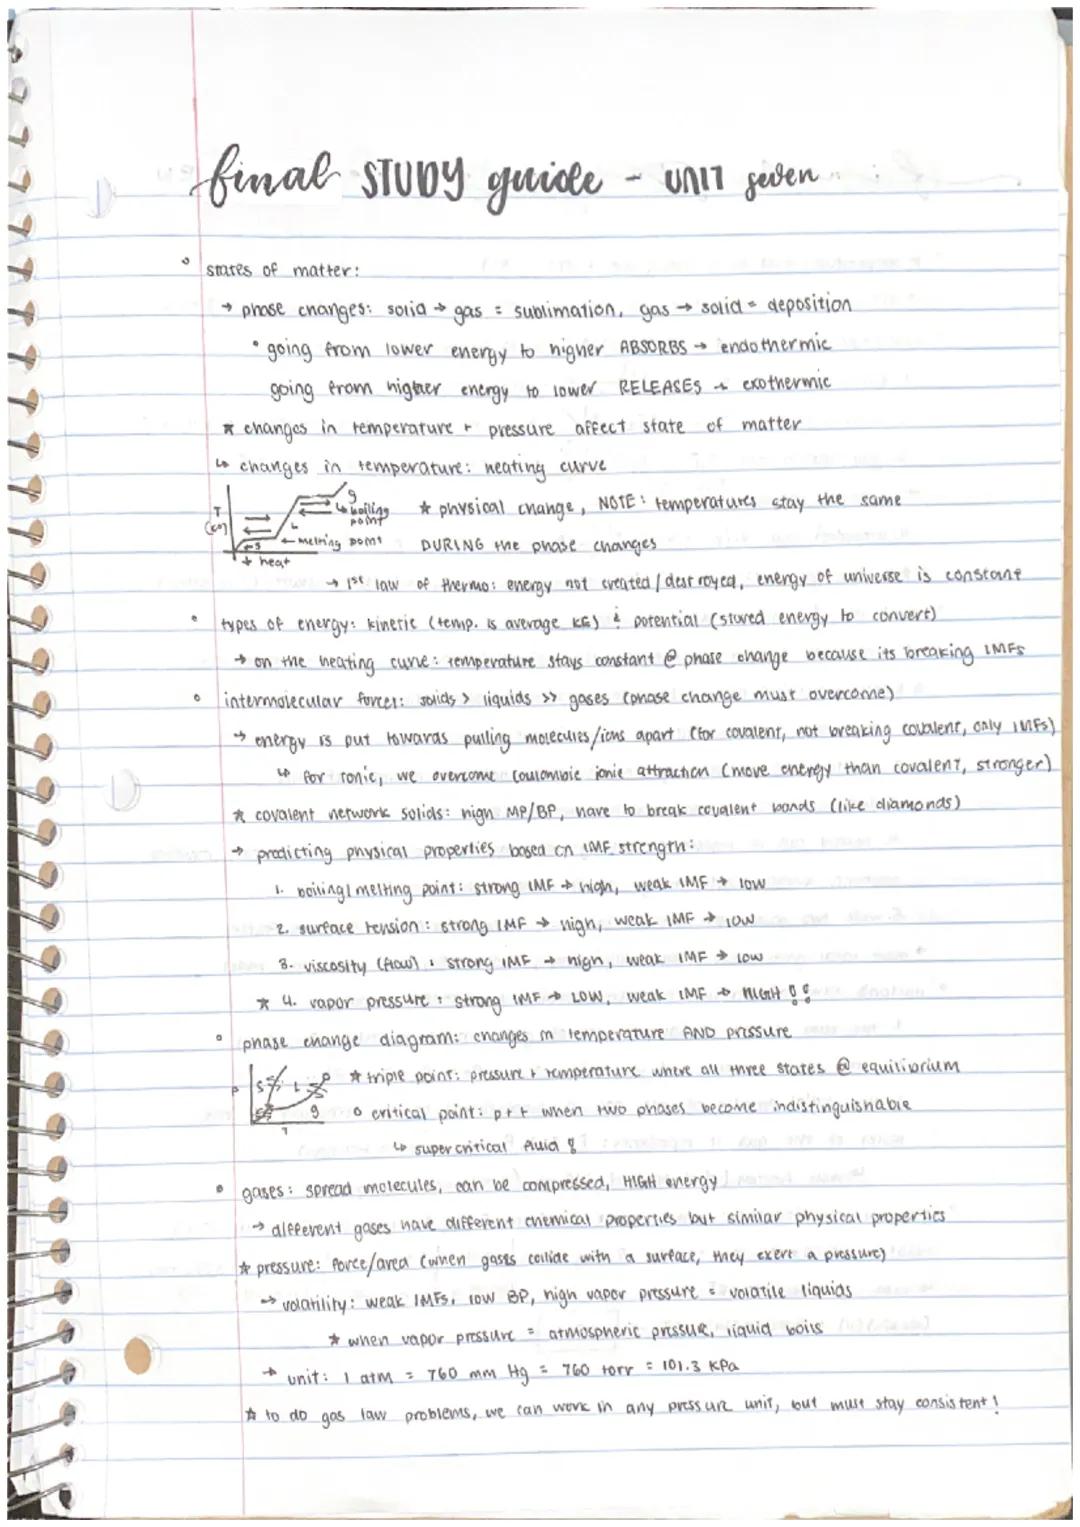 final STUDY guide - UNIT seven
states of matter:
→ phase changes: solid → gas = sublimation, gas → solid = deposition
• going from lower energy to higher ABSORBS → endothermic
going from higher energy to lower RELEASES → exothermic
* changes in temperature + pressure affect state of matter
↳ changes in temperature: heating curve
T
(C°)
g
↳ boiling point
L
← melting point
←s
+ heat
* physical change, NOTE: temperatures stay the same
DURING the phase changes
→ 1st law of thermo: energy not created/destroyed, energy of universe is constant
• types of energy: kinetic (temp. is average KE) & potential (stored energy to convert)
→ on the heating curve: temperature stays constant @ phase change because its breaking IMFs
• intermolecular forces: solids > liquids >> gases (phase change must overcome)
→ energy is put towards pulling molecules/ions apart (for covalent, not breaking covalent, only IMFs)
↳ for ionic, we overcome coulombic ionic attraction (more energy than covalent, stronger)
* covalent network solids: high MP/BP, have to break covalent bonds (like diamonds)
→ predicting physical properties based on IMF strength:
1. boiling/melting point: strong IMF → high, weak IMF → low
2. surface tension: strong IMF → high, weak IMF → low
3. viscosity (flow): strong IMF → high, weak IMF → low
* 4. vapor pressure: strong IMF → LOW, weak IMF → HIGH!!
• phase change diagram: changes in temperature AND pressure
P
S L
g
T
* triple point: pressure + temperature where all three states @ equilibrium
o critical point: p + t when two phases become indistinguishable
↳ supercritical fluid!
• gases: spread molecules, can be compressed, HIGH energy
→ different gases have different chemical properties but similar physical properties
* pressure: force/area (when gases collide with a surface, they exert a pressure)
→ volatility: weak IMFs, low BP, high vapor pressure = volatile liquids
* when vapor pressure = atmospheric pressure, liquid boils
→ unit: 1 atm = 760 mm Hg = 760 torr = 101.3 kPa
* to do gas law problems, we can work in any pressure unit, but must stay consistent!